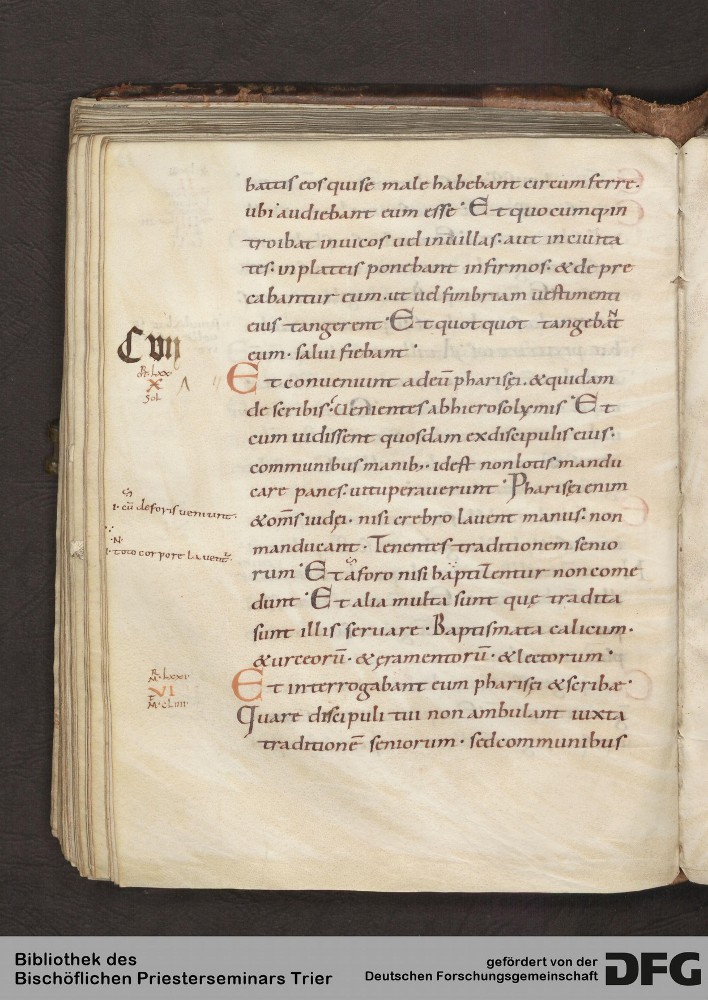 battis eos quise male habebant circumferre.
ubi audiebant eum esse · Et quocumq; in
troibat inuicos uel inuillas. aut inciuita
tes. inplateis ponebant infirmos. & de pre
cabantur eum. ut uel fimbriam uestimenti
eius tangerent · Et quotquot tangebaNt
eum. salui fiebant ·
C VII
Et conueniunt adeū pharisęi. & quidam
R. LXX
X
Sol
de scribis. Uenientes abhierosolymis · Et
cum uidissent quosdam exdiscipulis eius.
communibus manib; . idest nonlotis mandu
care panes. uituperauerunt · Pharisęi enim
.i. cū deforis ueniunt.
& oms iudęi. nisi crebro lauent manus. non
manducant. Tenentes traditionem senio
N
.i. toto corpore lauent.
rum · Et aforo nisi baptizentur noncome
dunt · Et alia multa sunt quę tradita
sunt illis seruare. Baptismata calicum.
& urceorū. & ęramentorū. & lectorum ·
R
M. LXXI
VI
M. CLIIII
Et interrogabant eum pharisęi & scribæ ·
Quare discipuli tui non ambulant iuxta
traditionē seniorum. sedcommunibus
Bibliothek des
Bischöflichen Priesterseminars Trier
gefördert von der
Deutschen Forschungsgemeinschaft
DFG